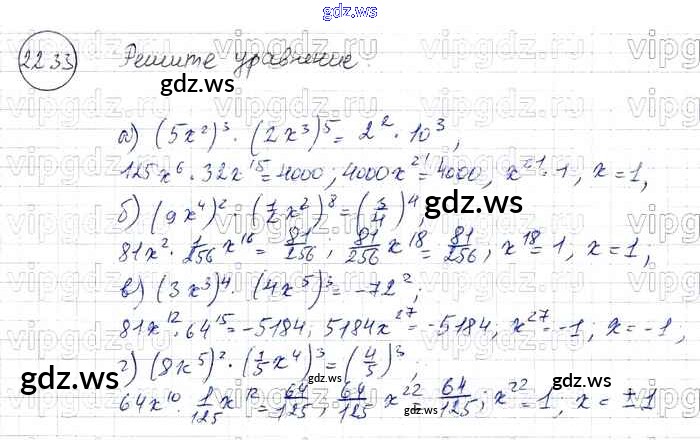 gdz.ws
22.33 Решите уравнение
а) (5x²)³ · (2x³)⁵ = 2² · 10³,
125x⁶ · 32x¹⁵ = 4000; 4000x²¹ = 4000, x²¹ = 1, x = 1,
б) (9x⁴)² · (1/2 x²)⁸ = (3/4)⁴,
81x² · 1/256 x¹⁶ = 81/256; 81/256 x¹⁸ = 81/256, x¹⁸ = 1, x = 1;
в) (3x³)⁴ · (4x⁵)³ = -72²;
81x¹² · 64¹⁵ = -5184; 5184x²⁷ = -5184, x²⁷ = -1; x = -1;
г) (8x⁵)² · (1/5 x⁴)³ = (4/5)³;
64x¹⁰ · 1/125 x¹² = 64/125; 64/125 x²² = 64/125; x²² = 1, x = ±1